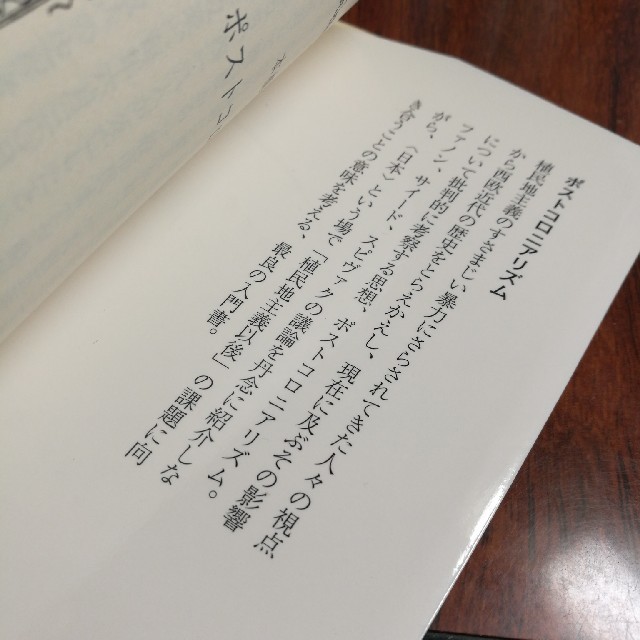 ポストコロニアリズム
植民地主義のすさまじい暴力にさらされてきた人々の視点
から西欧近代の歴史をとらえかえし、現在に及ぶその影響
について批判的に考察する思想、ポストコロニアリズム。
ファノン、サイード、スピヴァクの議論を丹念に紹介しな
がら、〈日本〉という場で「植民地主義以後」の課題に向
き合うことの意味を考える、最良の入門書。
ポストコ